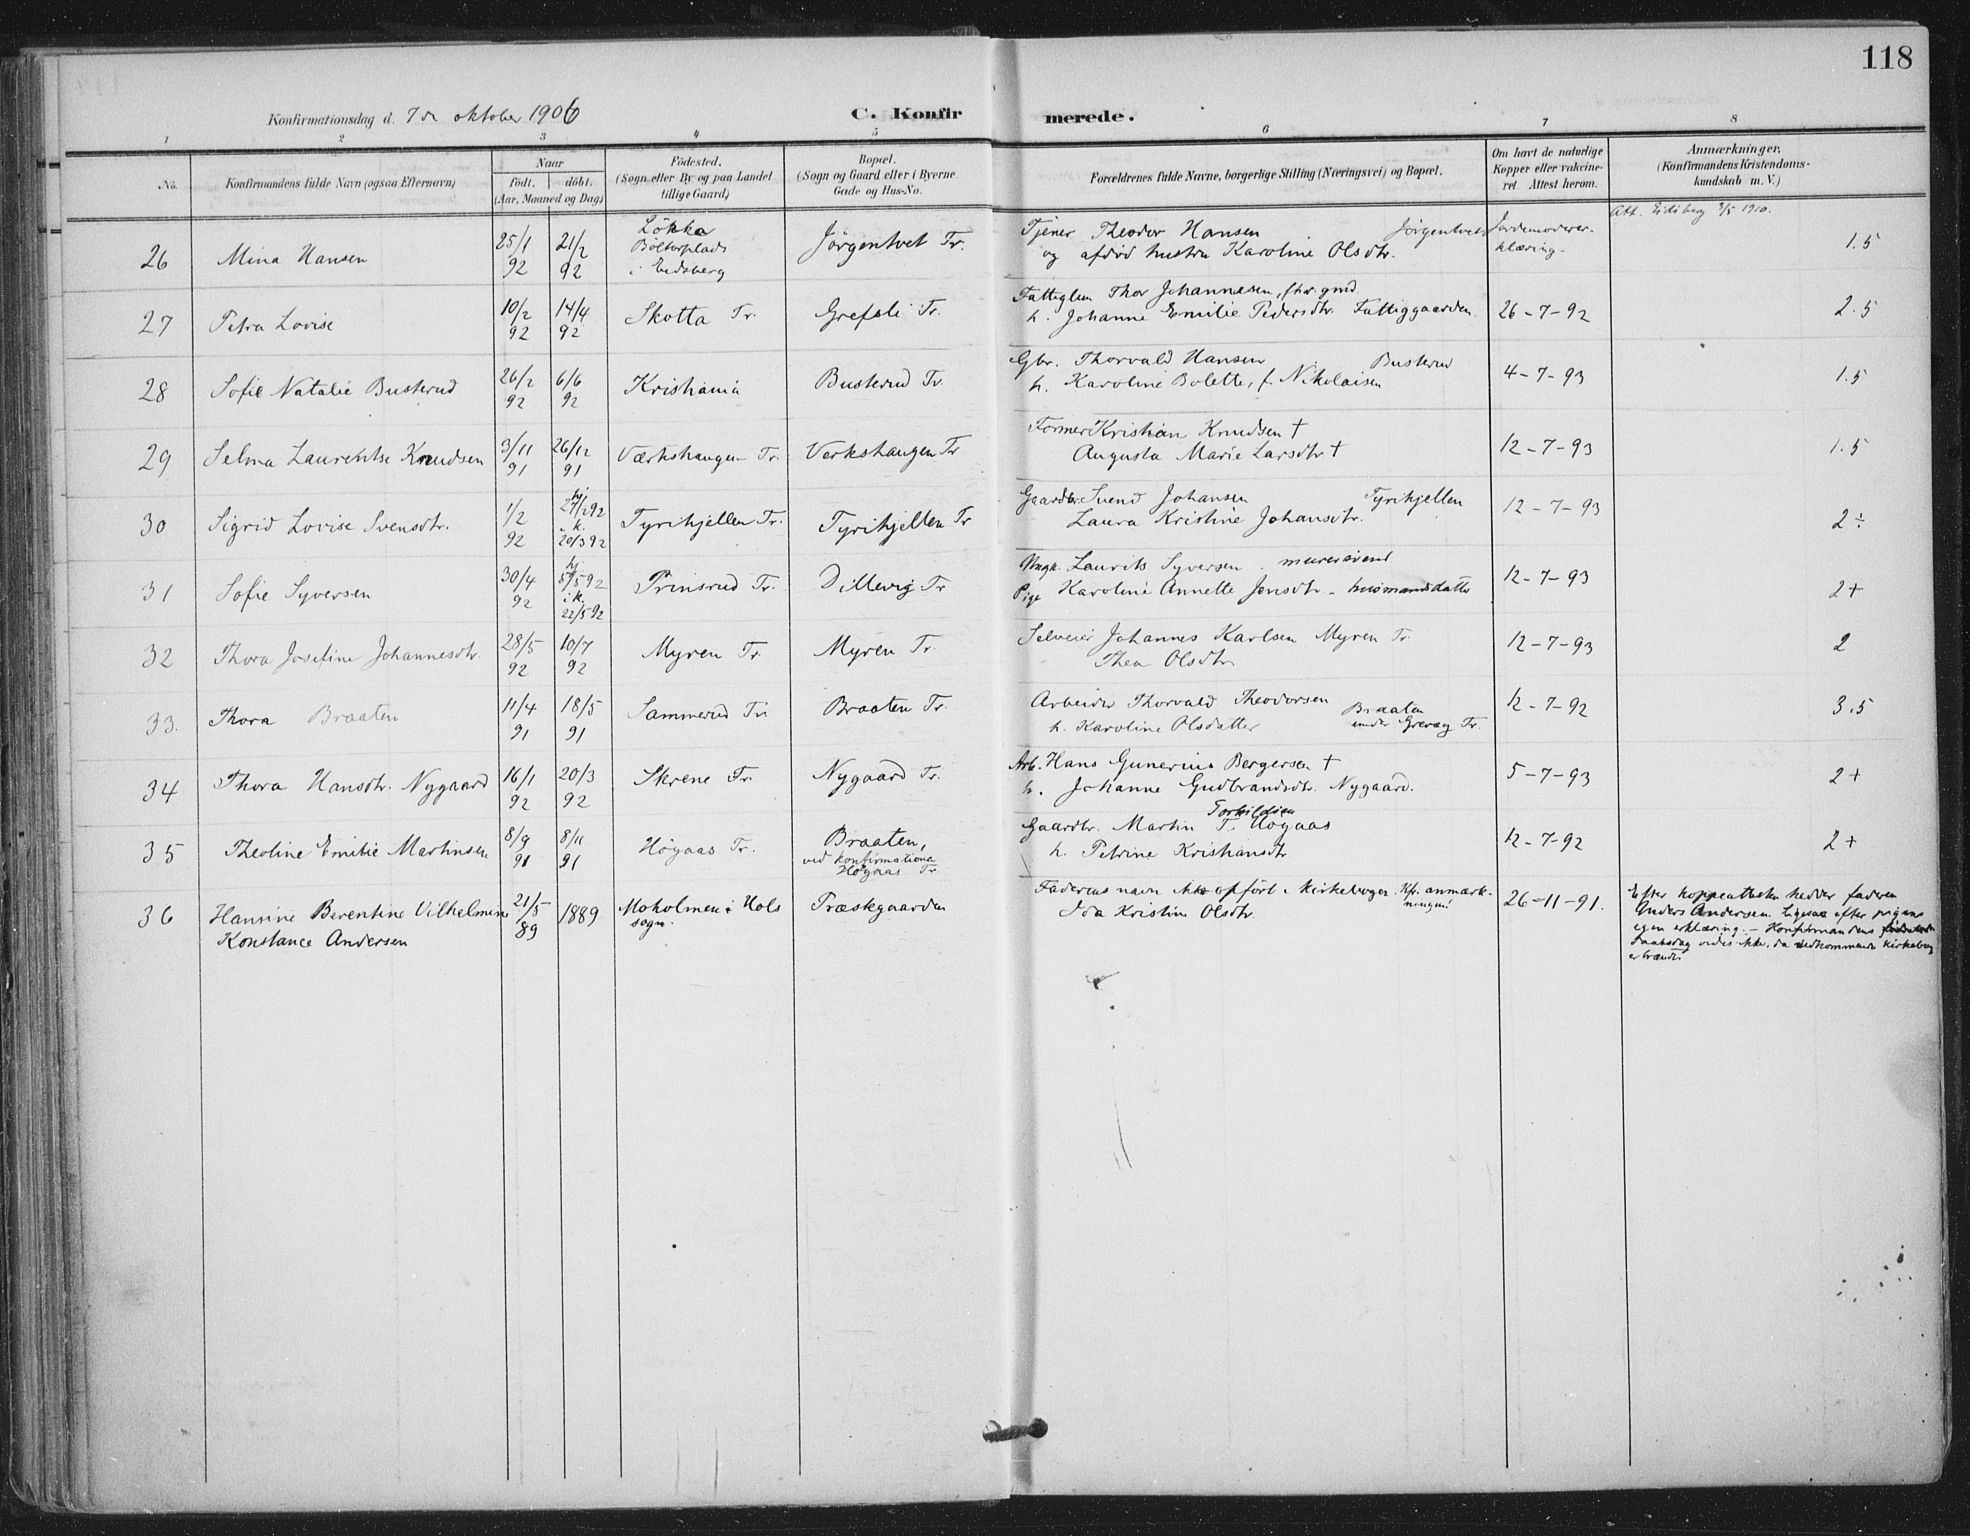 118
Konfirmationsdag d. 7de oktober 1906
C. Konfirmerede.
1 2 3 4 5 6 7 8
No.
Konfirmandens fulde Navn (ogsaa Efternavn)
Naar
födt. döbt.
(Aar, Maaned og Dag)
Födested.
(Sogn eller By og paa Landet
tillige Gaard)
Bopæl.
(Sogn og Gaard eller i Byerne
Gade og Hus-No.
Forældrenes fulde Navne, borgerlige Stilling (Næringsvei) og Bopæl.
Om havt de naturlige
Kopper eller vakcine-
ret. Attest herom.
Anmærkninger.
(Konfirmandens Kristendoms-
kundskab m. V.)
Att. Eidsberg 3/5 1910.
26 Mina Hansen 25/1 92 21/2 92
Lökka
i Eidsberg
Jørgentvet Tr.
Tjener Theodor Hansen Jørgentvet
og afdød hustru Karoline Olsdtr.
Jordemoderer-
klæring
1.5
27 Petra Lovise 10/2 92 14/4 92 Skotta Tr. Grefsli Tr.
Fattiglem Thor Johannesen, fhv. gmd
h. Johanne Emilie Pedersdtr. Fattiggaarden
26-7-92 2.5
28 Sofie Natalie Busterud 26/2 92 6/6 92 Kristiania Busterud Tr.
Gbr. Thorvald Hansen Busterud
h. Karoline Bolette, f. Nikolaisen
4-7-93 1.5
29 Selma Laurentse Knudsen 3/11 91 26/12 91 Værkshaugen Tr. Verkshaugen Tr
Former Kristian Knudsen †
Augusta Marie Larsdtr †
12-7-93 1.5
30 Sigrid Lovise Svensdtr. 1/2 92 hj. 27/2 92 i k. 20/3 92 Tyrihjellen Tr. Tyrihjellen Tr
Gaardbr. Svend Johansen Tyrihjellen
Laura Kristine Johansdtr.
12-7-93 2÷
31 Sofie Syversen 30/4 92 hj 5/5 92 i k. 22/5 92 Prinsrud Tr. Dillevig Tr
Ungk. Laurits Syversen. murersvend
Pige Karoline Annette Jensdtr. - husmandsdatter
12-7-93 2+
32 Thora Josefine Johannesdtr. 28/5 92 10/7 92 Myren Tr. Myren Tr.
Selveier Johannes Karlsen Myren Tr.
Thea Olsdtr
12-7-93 2
33. Thora Braaten 11/4 91 18/5 91 Sammerud Tr. Braaten Tr.
Arbeider Thorvald Theodorsen
h. Karoline Olsdatter Braaten
under Grevæg Tr.
12-7-92 3.5
34 Thora Hansdtr. Nygaard 16/1 92 20/3 92 Skrene Tr. Nygaard Tr.
Arb. Hans Gunerius Bergersen †
h. Johanne Gudbrandsdtr. Nygaard.
5-7-93 2+
35 Theoline Emilie Martinsen 8/9 91 8/11 91 Høgaas Tr.
Braaten,
ved konfirmationen
Høgaas Tr
Torkildsen
Gaardbr. Martin T. Høgaas
h. Petrine Kristiansdtr
12-7-92 2+
36 Hansine Berentine Vilhelmine
Konstance Andersen
21/5 89 1889
Moholmen i Hols
sogn.
Træskgaarden
Faderens navn ikke opført i kirkebogen. Kfr. anmærk-
ningen!
Ida Kristine Olsdtr.
26-11-91.
Efter koppeattesten hedder faderen
Anders Andersen. Ligesaa efter pigens
egen erklæring. - Konfirmandens
Daabsdag vides ikke, da vedkommende kirkebog
er brændt